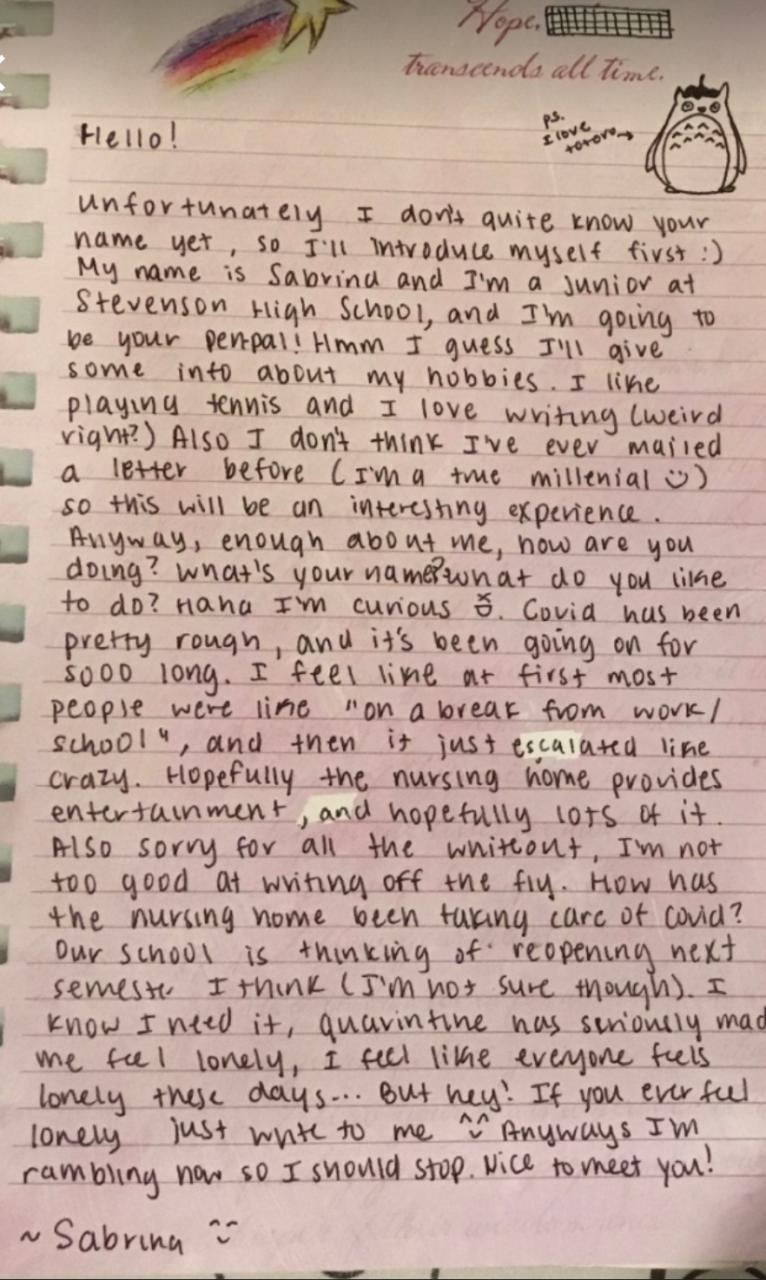 Hope.
transcends all time.
ps.
I love
totoro→
Hello!
Unfortunately I don't quite know your
name yet, so I'll introduce myself first :)
My name is Sabrina and I'm a junior at
Stevenson High School, and I'm going to
be your penpal! Hmm I guess I'll give
some info about my hobbies. I like
playing tennis and I love writing (weird
right?) Also I don't think I've ever mailed
a letter before (I'm a true millenial ☺)
so this will be an interesting experience.
Anyway, enough about me, how are you
doing? What's your name? What do you like
to do? Haha I'm curious. Covid has been
pretty rough, and it's been going on for
sooo long. I feel like at first most
people were like "on a break from work/
school", and then it just escalated like
crazy. Hopefully the nursing home provides
entertainment, and hopefully lots of it.
Also sorry for all the whiteout, I'm not
too good at writing off the fly. How has
the nursing home been taking care of covid?
Our school is thinking of reopening next
semeste I think (I'm not sure though). I
know I need it, quarintine has seriously mad
me feel lonely, I feel like everyone feels
lonely these days... But hey! If you ever feel
lonely just write to me ^⌣^ Anyways I'm
rambling now so I should stop. Nice to meet you!
~ Sabrina ^⌣^